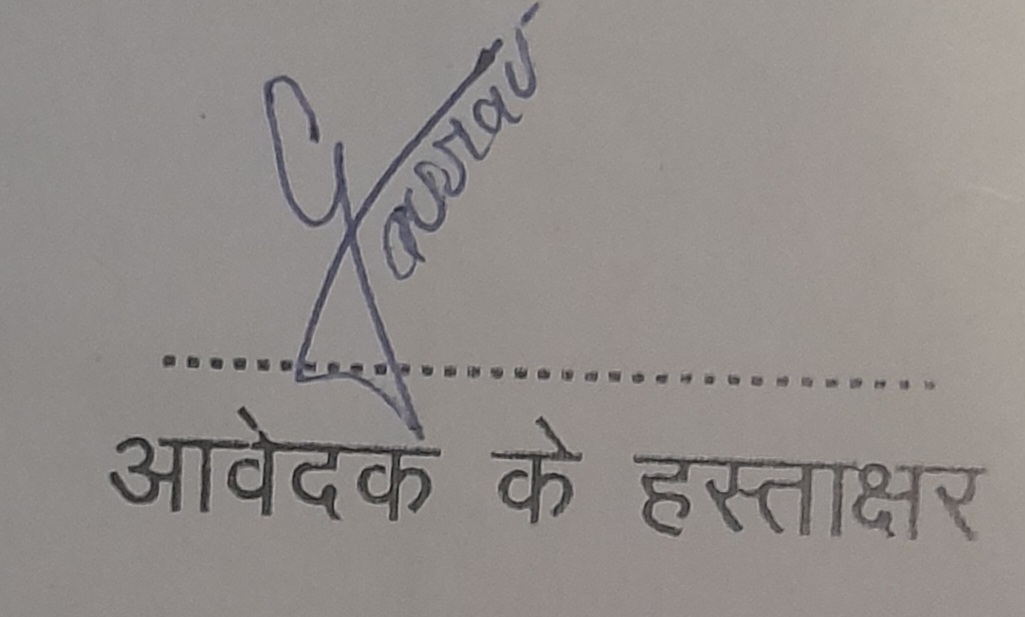 Gaurav
आवेदक के हस्ताक्षर